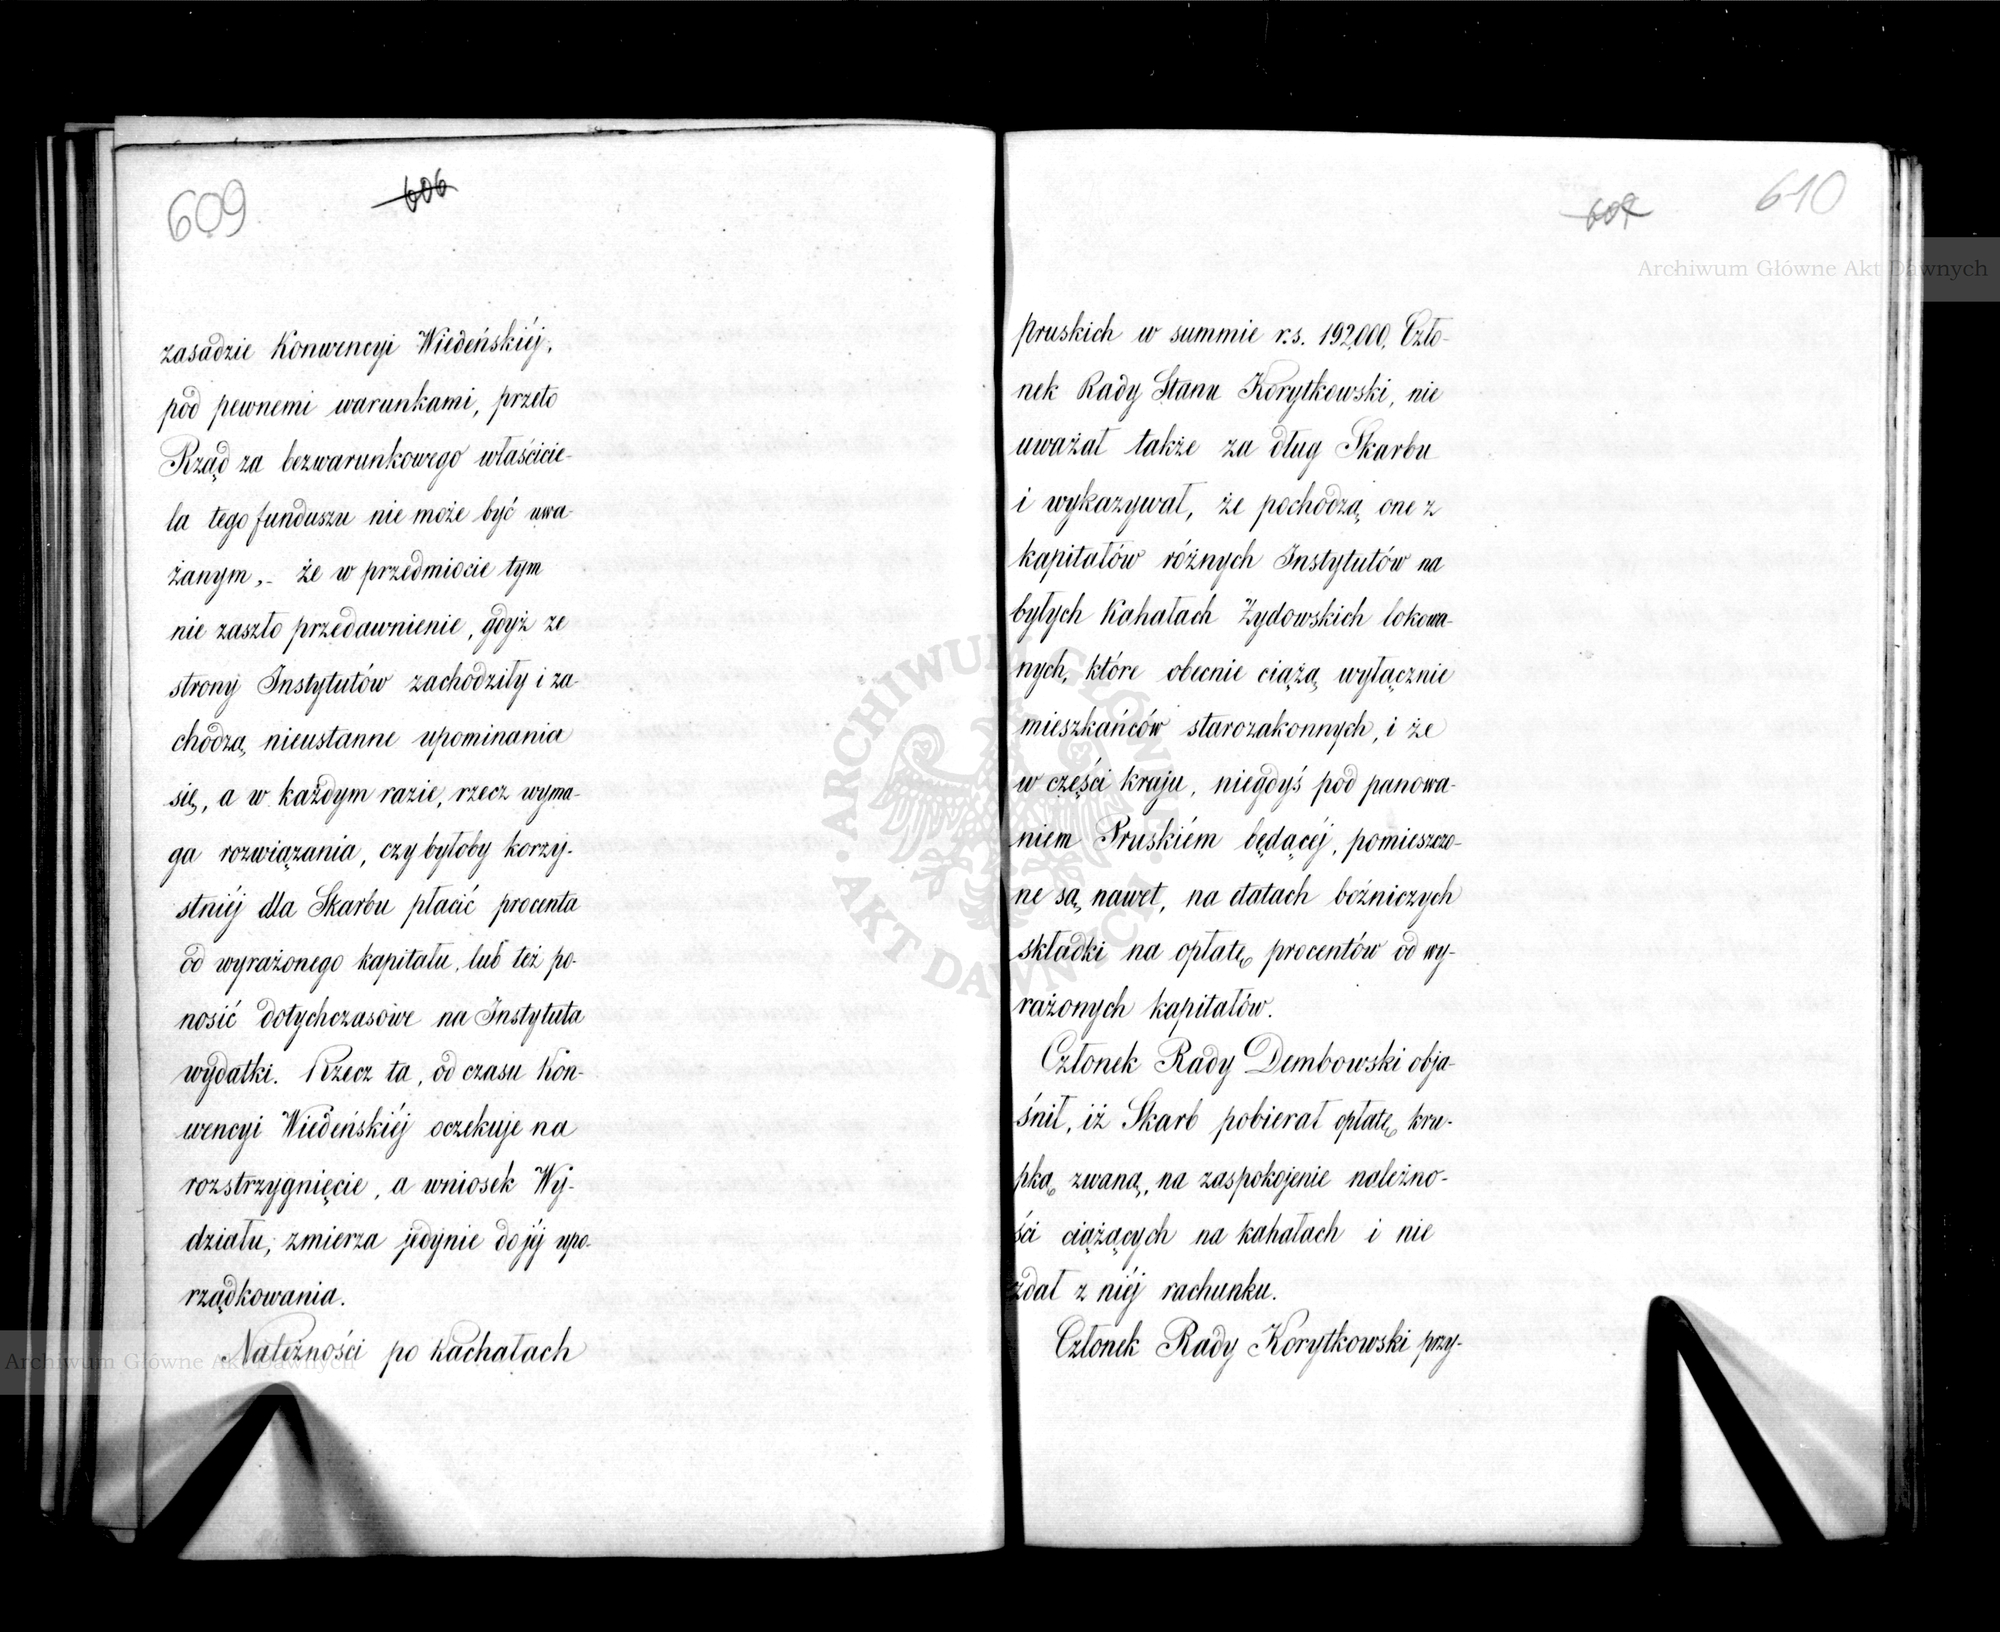 609
606
zasadzie Konwencyi Wiedeńskiéj,
pod pewnemi warunkami, przeto
Rząd za bezwarunkowego właścicie-
la tego funduszu nie może być uwa-
żanym,- że w przedmiocie tym
nie zaszło przedawnienie, gdyż ze
strony Instytutów zachodziły i za-
chodzą nieustanne upominania
się, a w każdym razie, rzecz wyma-
ga rozwiązania, czy byłoby korzy-
stniéj dla Skarbu płacić procenta
od wyrażonego kapitału, lub też po-
nosić dotychczasowe na Instytuta
wydatki. Rzecz ta, od czasu Kon-
wencyi Wiedeńskiéj oczekuje na
rozstrzygnięcie, a wniosek Wy-
działu, zmierza jedynie do jéj upo-
rządkowania.
Należności po Kachałach
610
607
pruskich w summie r.s. 192,000, Czło-
nek Rady Stanu Korytkowski, nie
uważał także za dług Skarbu
i wykazywał, że pochodzą one z
kapitałów różnych Instytutów na
byłych Kahałach Żydowskich lokowa-
nych, które obecnie ciążą wyłącznie
mieszkańców starozakonnych, i że
w części kraju, niegdyś pod panowa-
niem Pruskiém będącéj, pomieszczo-
ne są nawet, na etatach bóżniczych
składki na opłatę procentów od wy-
rażonych kapitałów.
Członek Rady Dembowski obja-
śnił, iż Skarb pobierał opłatę kru-
pką zwaną, na zaspokojenie należno-
ści ciążących na kahałach i nie
zdał z niéj rachunku.
Członek Rady Korytkowski przy-
Archiwum Główne Akt Dawnych
Archiwum Główne Akt Dawnych
ARCHIWUM GŁÓWNE AKT DAWNYCH